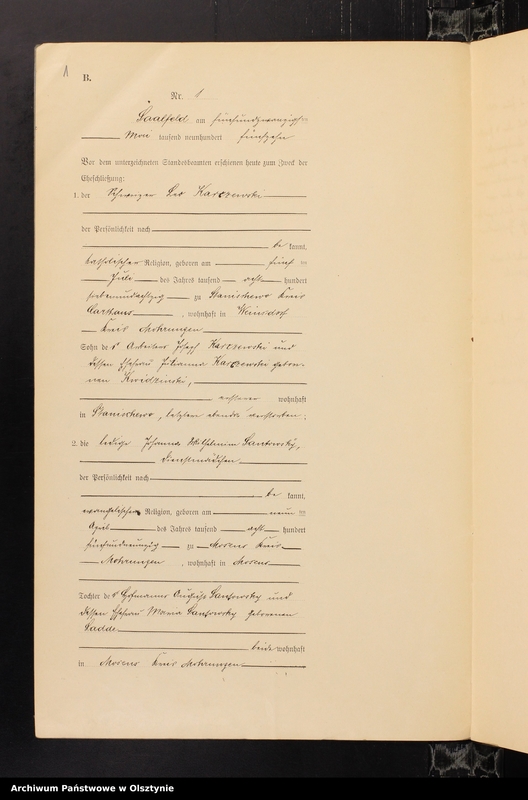 1
B.
Nr. 1
Saalfeld am fünfundzwanzigsten
Mai tausend neunhundert fünfzehn
Vor dem unterzeichneten Standesbeamten erschienen heute zum Zweck der
Eheschließung:
1. der Schweizer Leo Karczewski
der Persönlichkeit nach
be kannt,
katholischer Religion, geboren am fünf ten
Juli des Jahres tausend acht hundert
siebenundachtzig zu Stanischewo Kreis
Carthaus, wohnhaft in Weinsdorf
Kreis Mohrungen
Sohn des Arbeiters Joseph Karczewski und
dessen Ehefrau Julianna Karczewski gebor-
nen Kwidzinski,
ersterer wohnhaft
in Stanischewo, letztere ebenda verstorben;
2. die ledige Johanna Wilhelmine Santowsky,
Dienstmädchen
der Persönlichkeit nach
be kannt,
evangelischer Religion, geboren am neun ten
April des Jahres tausend acht hundert
fünfundneunzig zu Kreis
Mohrungen, wohnhaft in
Tochter des Hofmanns August Santowsky und
dessen Ehefrau Maria Santowsky geborenen
beide wohnhaft
in Kreis Mohrungen
Archiwum Państwowe w Olsztynie